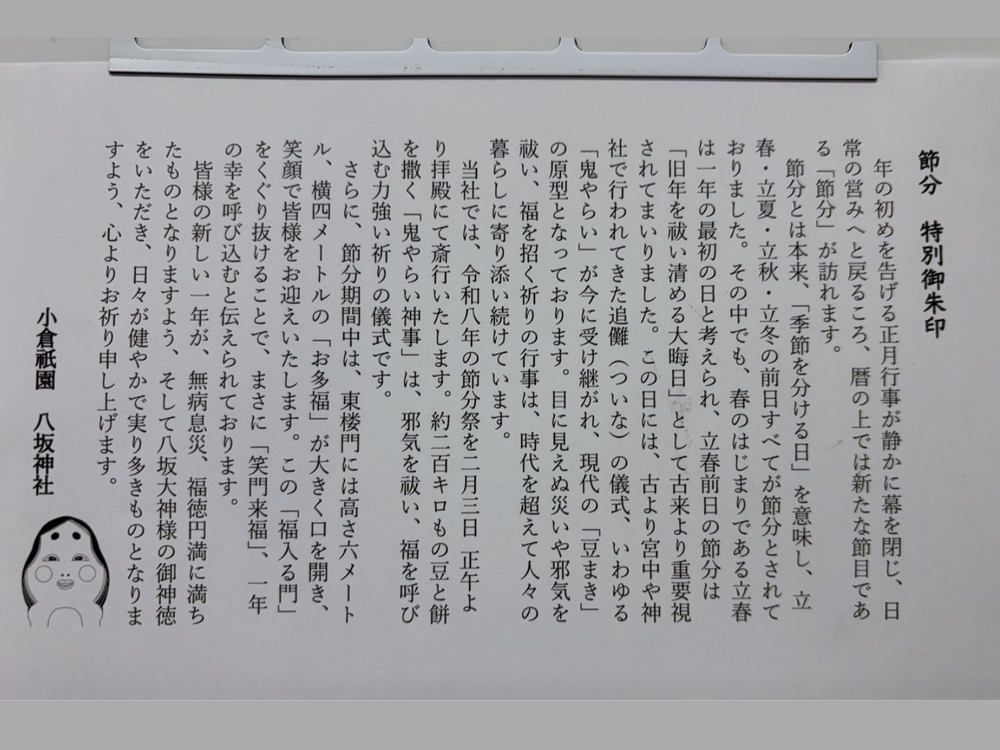 節分　特別御朱印
　年の初めを告げる正月行事が静かに幕を閉じ、日
常の営みへと戻るころ、暦の上では新たな節目であ
る「節分」が訪れます。
　節分とは本来、「季節を分ける日」を意味し、立
春・立夏・立秋・立冬の前日すべてが節分とされて
おりました。その中でも、春のはじまりである立春
は一年の最初の日と考えられ、立春前日の節分は
「旧年を祓い清める大晦日」として古来より重要視
されてまいりました。この日には、古より宮中や神
社で行われてきた追儺（ついな）の儀式、いわゆる
「鬼やらい」が今に受け継がれ、現代の「豆まき」
の原型となっております。目に見えぬ災いや邪気を
祓い、福を招く祈りの行事は、時代を超えて人々の
暮らしに寄り添い続けています。
　当社では、令和八年の節分祭を二月三日 正午よ
り拝殿にて斎行いたします。約二百キロもの豆と餅
を撒く「鬼やらい神事」は、邪気を祓い、福を呼び
込む力強い祈りの儀式です。
　さらに、節分期間中は、東楼門には高さ六メート
ル、横四メートルの「お多福」が大きく口を開き、
笑顔で皆様をお迎えいたします。この「福入る門」
をくぐり抜けることで、まさに「笑門来福」、一年
の幸を呼び込むと伝えられております。
　皆様の新しい一年が、無病息災、福徳円満に満ち
たものとなりますよう、そして八坂大神様の御神徳
をいただき、日々が健やかで実り多きものとなりま
すよう、心よりお祈り申し上げます。
小倉祇園　八坂神社